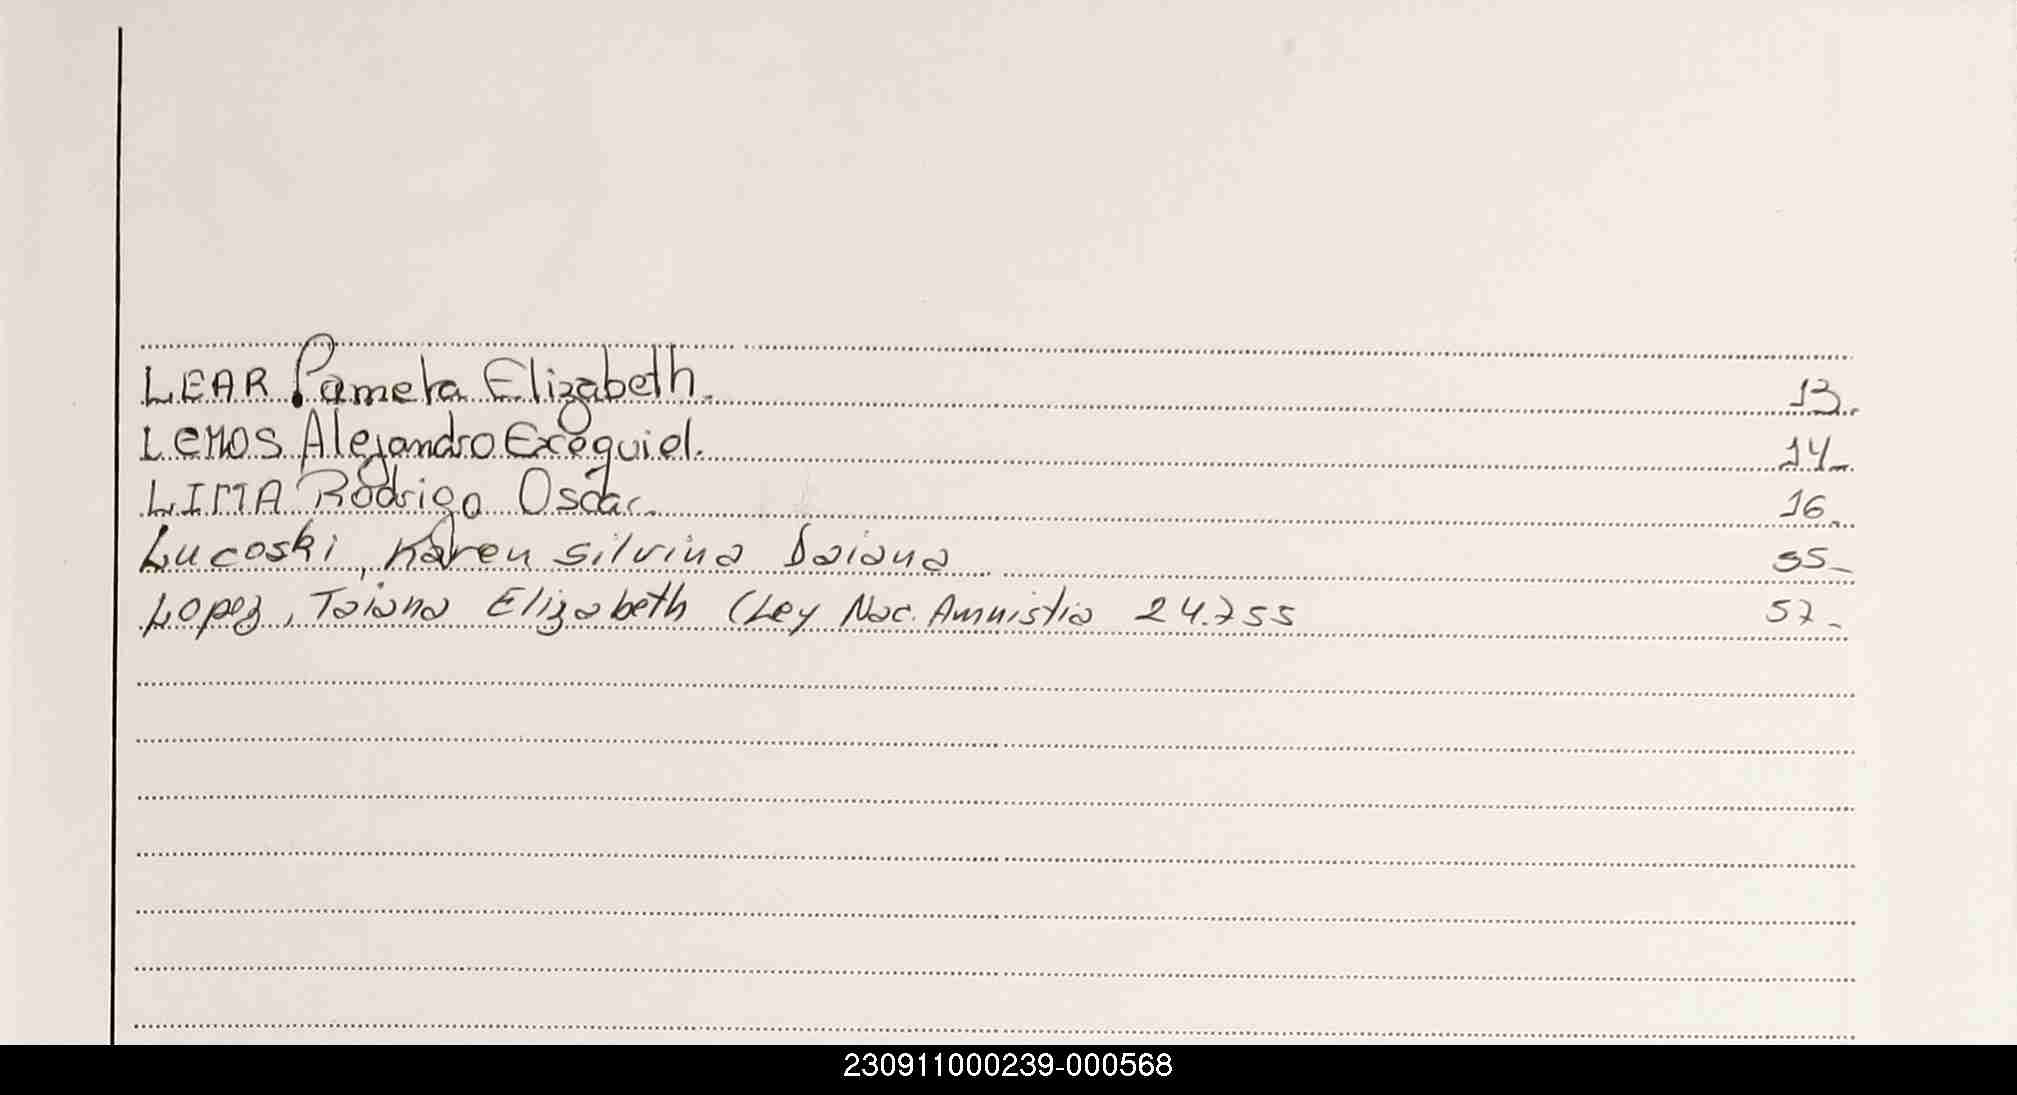 LEAR Pamela Elizabeth. 13.
LEMOS Alejandro Exequiel. 14_
LIMA Rodrigo Oscar. 16_
Lucoski, Karen Silvina Daiana 55_
Lopez, Taiana Elizabeth (Ley Nac. Amnistia 24.755 57_
230911000239-000568